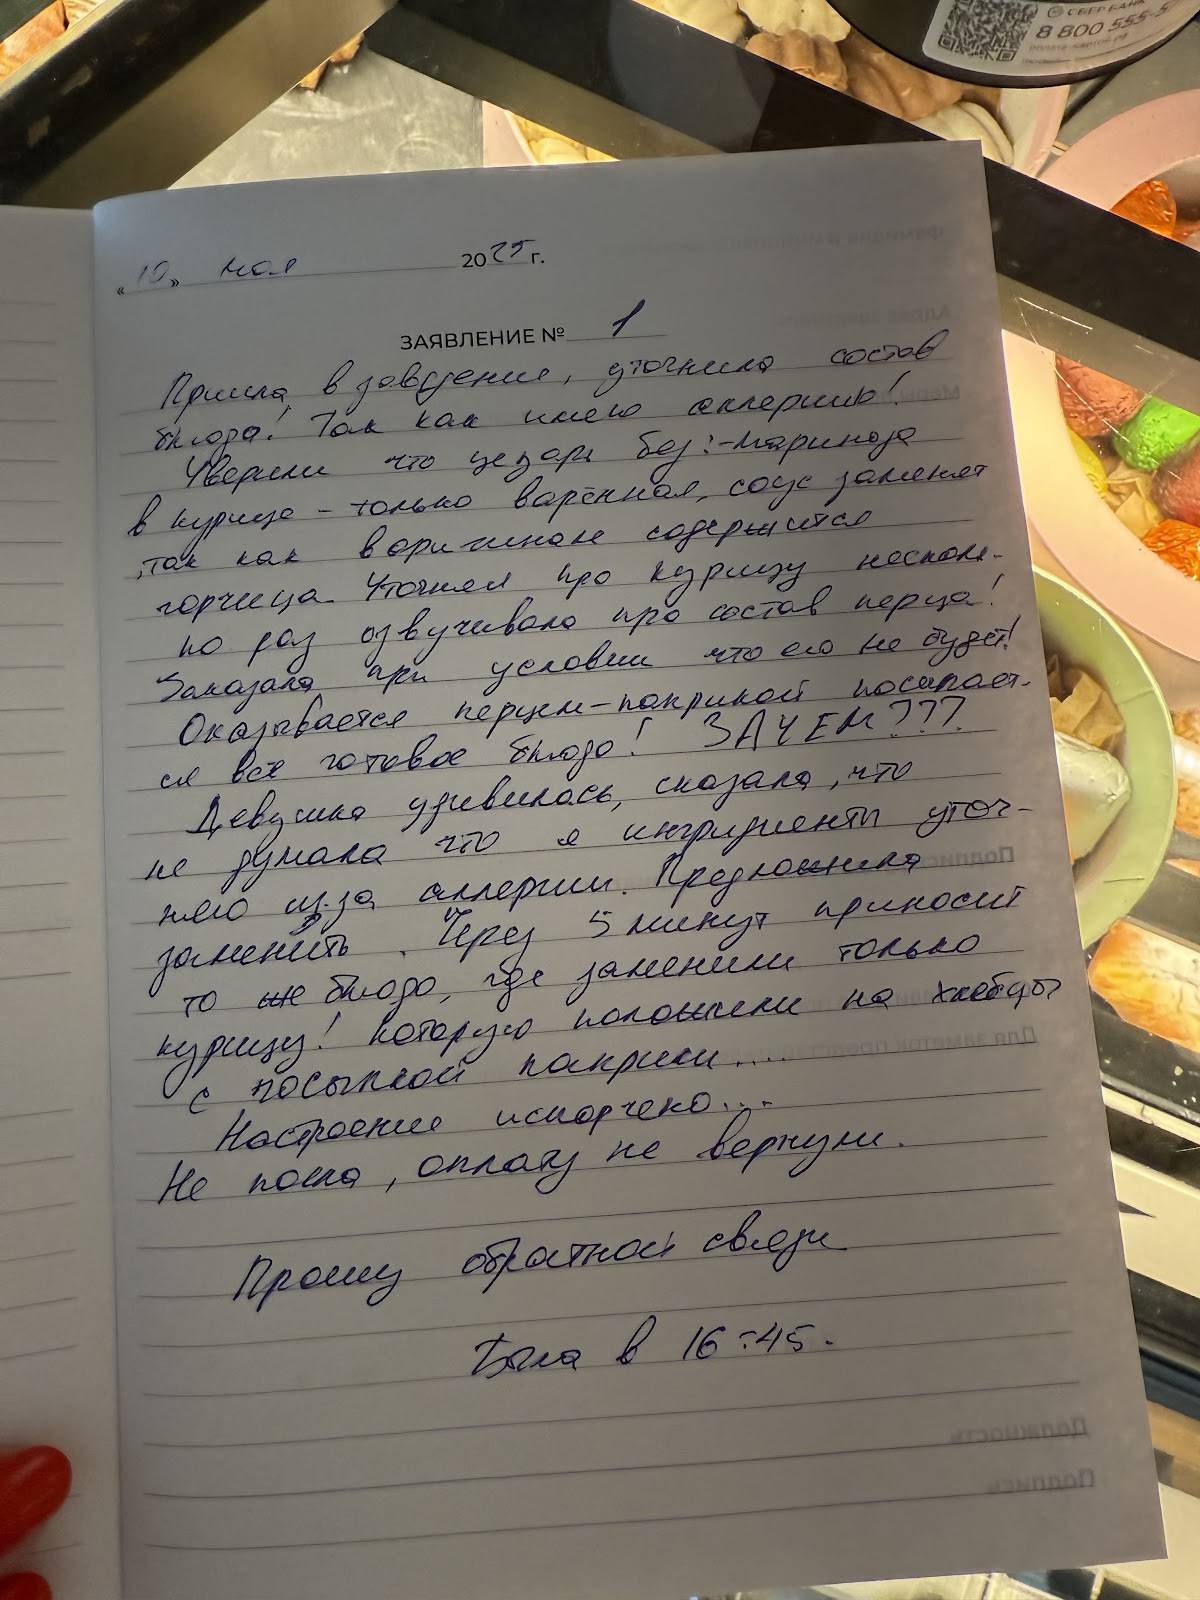 СБЕР БАНК
8 800 555-5
"10" мая 2025 г.
ЗАЯВЛЕНИЕ № 1
Пришла в заведение, уточнила состав
блюда! Так как имею аллергию!
Уверили что цезарь без:-маринада
в курице - только варённая, соус заменят
,так как в оригинале содержится
горчица. Уточняя про курицу несколь-
ко раз озвучивала про состав перца!
Заказала при условии что его не будет!
Оказывается перцем-паприкой посыпает-
ся всё готовое блюдо! ЗАЧЕМ???
Девушка удивилась, сказала, что
не думала что я ингридиенты уточ-
няю из-за аллергии. Предложила
заменить. Через 5 минут приносит
то же блюдо, где заменили только
курицу! которую положили на хлебцы
с посыпкой паприки....
Настроение испорчено...
Не поела, оплату не вернули.
Прошу обратной связи
Была в 16:45.
Подпись
Для заметок
Должность
Подпись